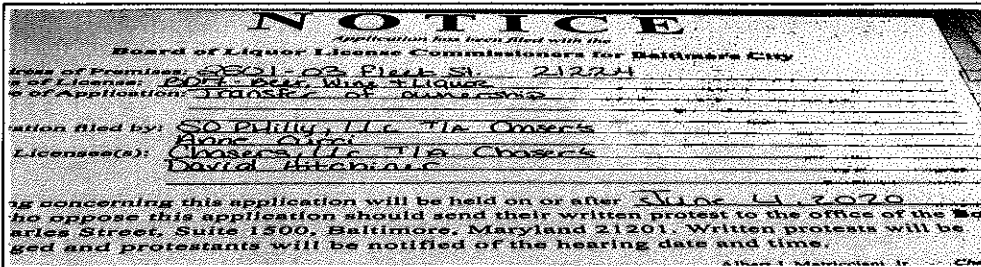 NOTICE
Application has been filed with the
Board of Liquor License Commissioners for Baltimore City
ress of Premises: St. 21224
of License: Beer, Wine + Liquor
e of Application: Transfer of ownership
ation filed by: SO Philly, LLC T/A Chaser's
Anne
Licensee(s): Chasers, LLC T/A Chaser's
David
ng concerning this application will be held on or after June 4, 2020
ho oppose this application should send their written protest to the office of the Bo
arles Street, Suite 1500, Baltimore, Maryland 21201. Written protests will be
ged and protestants will be notified of the hearing date and time.
Albert J. Matricciani, Jr.